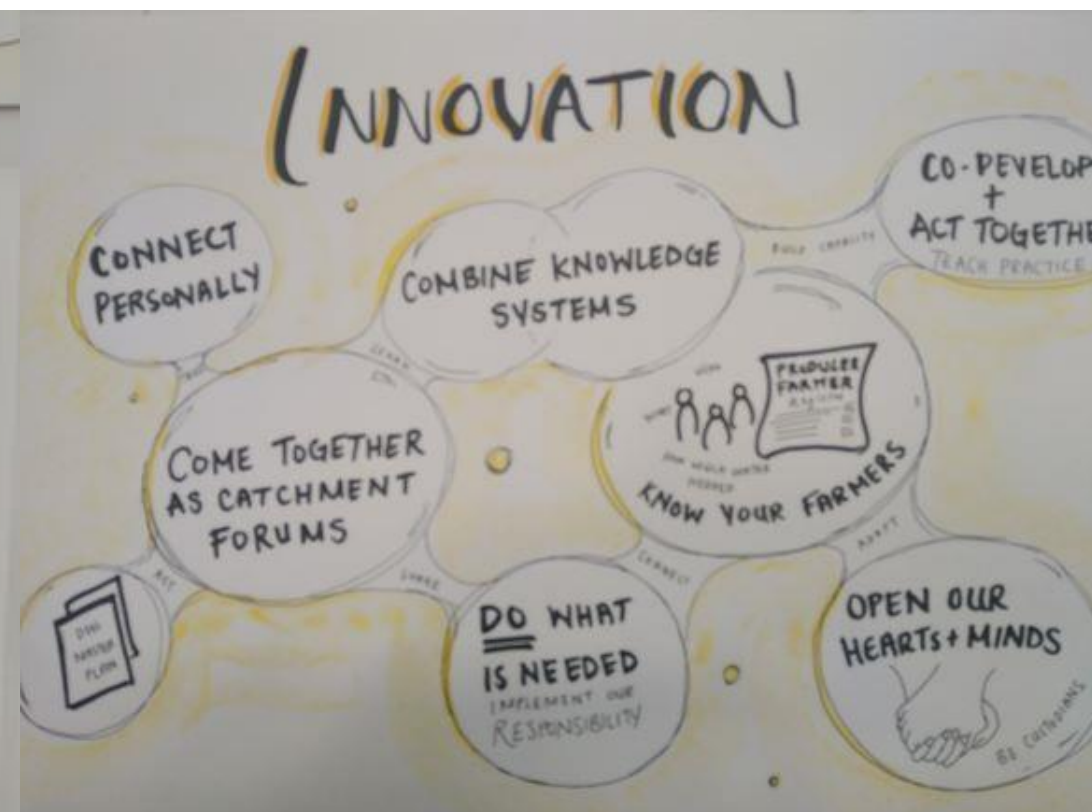 INNOVATION
CONNECT
PERSONALLY
COMBINE KNOWLEDGE
SYSTEMS
BUILD CAPACITY
CO-DEVELOP
+
ACT TOGETHE
TEACH PRACTICE
LEARN
COME TOGETHER
AS CATCHMENT
FORUMS
PRODUCER
FARMER
REGISTER
KNOW YOUR FARMERS
ACT
SHARE
CONNECT
ADAPT
MASTER
PLAN
DO WHAT
IS NEEDED
IMPLEMENT OUR
RESPONSIBILITY
OPEN OUR
HEARTS + MINDS
BE CUSTODIANS